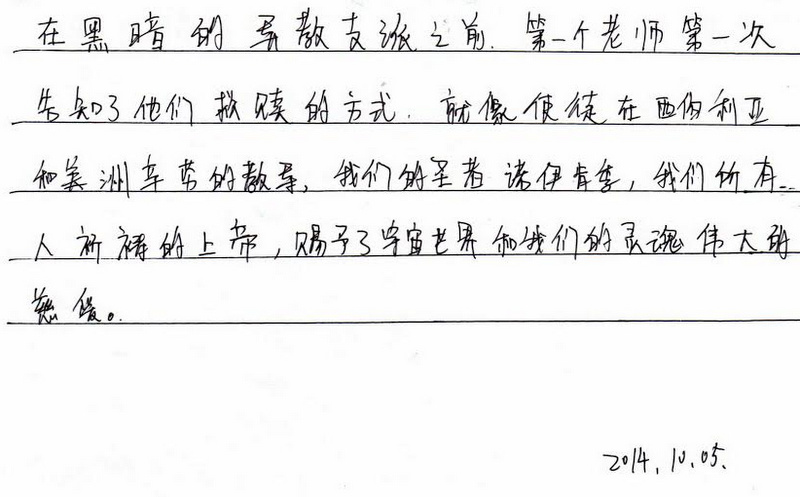 在黑暗的异教支派之前.第一个老师第一次
告知了他们救赎的方式.就像使徒在西伯利亚
和美洲辛劳的教导,我们的圣者诺伊肯季,我们所有
人祈祷的上帝,赐予了宇宙世界和我们的灵魂伟大的
慈爱。
2014.10.05.